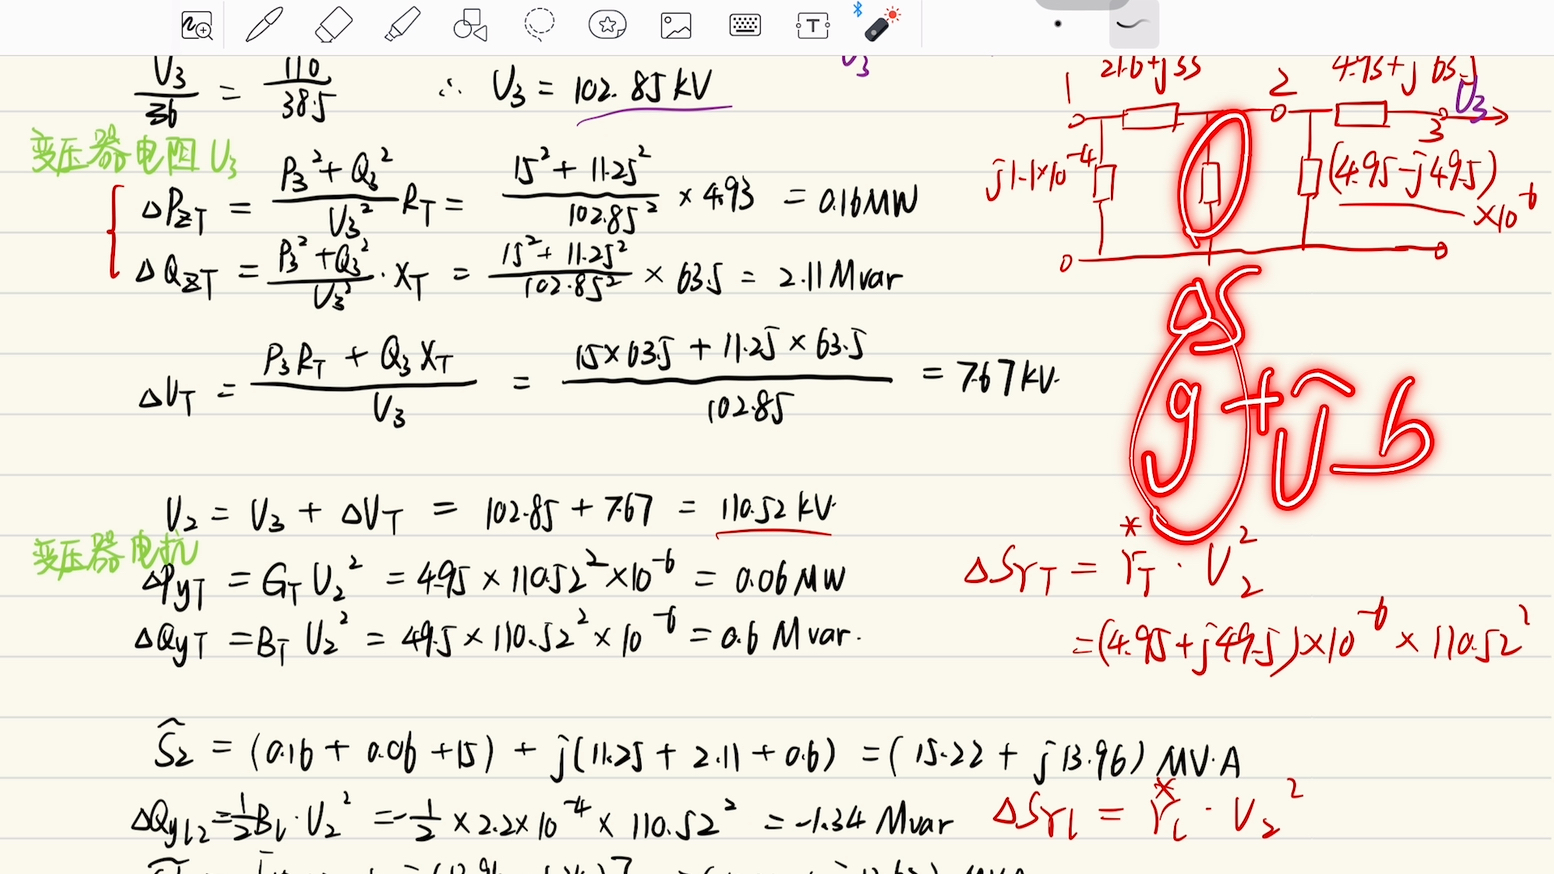 U₃/36 = 110/38.5 ∴ U₃ = 102.85 kV
变压器电阻 U₃
ΔP_ZT = (P₃² + Q₃²)/U₃² R_T = (15² + 11.25²)/102.85² × 4.93 = 0.16MW
ΔQ_ZT = (P₃² + Q₃²)/U₃² · X_T = (15² + 11.25²)/102.85² × 63.5 = 2.11 Mvar
ΔU_T = (P₃R_T + Q₃X_T)/U₃ = (15×63.5 + 11.25 × 63.5)/102.85 = 7.67 kV.
U₂ = U₃ + ΔU_T = 102.85 + 7.67 = 110.52 kV.
变压器电抗
ΔP_yT = G_T U₂² = 4.95 × 110.52² × 10⁻⁶ = 0.06 MW
ΔQ_yT = B_T U₂² = 49.5 × 110.52² × 10⁻⁶ = 0.6 Mvar.
S̃₂ = (0.16 + 0.06 + 15) + j(11.25 + 2.11 + 0.6) = (15.22 + j13.96) MV·A
ΔQ_yl2 = ½B_l · U₂² = -½ × 2.2×10⁻⁴ × 110.52² = -1.34 Mvar
U₃
1 21.6+j33 2 4.93+j63.5 U₃
3
j1.1×10⁻⁴
(4.95-j49.5)
×10⁻⁶
0 0
ΔS
g + U b
ΔS_YT = Y*_T · U₂²
=(4.95+j49.5)×10⁻⁶ × 110.52²
ΔS_Yl = Y*_l · U₂²